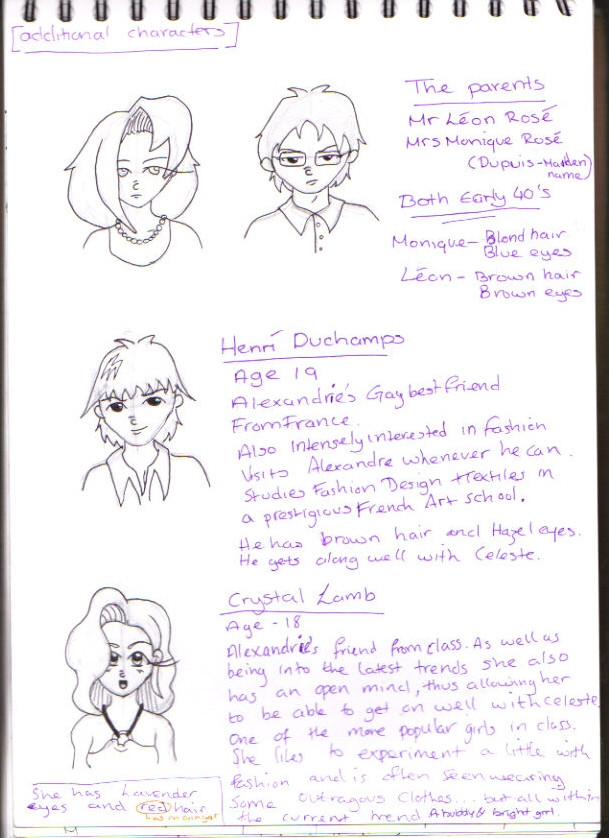 [additional characters]
The parents
Mr Léon Rosé
Mrs Monique Rosé
(Dupuis-Maiden
name)
Both Early 40's
Monique - Blond hair
Blue eyes
Léon - Brown hair
Brown eyes
Henrí Duchamps
Age 19
Alexandrie's Gay best friend
From France.
Also Intensely interested in fashion
Visits Alexandre whenever he can.
Studies Fashion Design + textiles in
a prestigious French Art school.
He has brown hair and Hazel eyes.
He gets along well with Celeste.
Crystal Lamb
Age - 18
Alexandrie's friend from class. As well as
being into the latest trends she also
has an open mind, thus allowing her
to be able to get on well with celeste.
One of the more popular girls in class.
She likes to experiment a little with
fashion and is often seen wearing
Some outragous clothes... but all within
the current trend A bubbly & bright girl.
She has Lavender
eyes and red hair